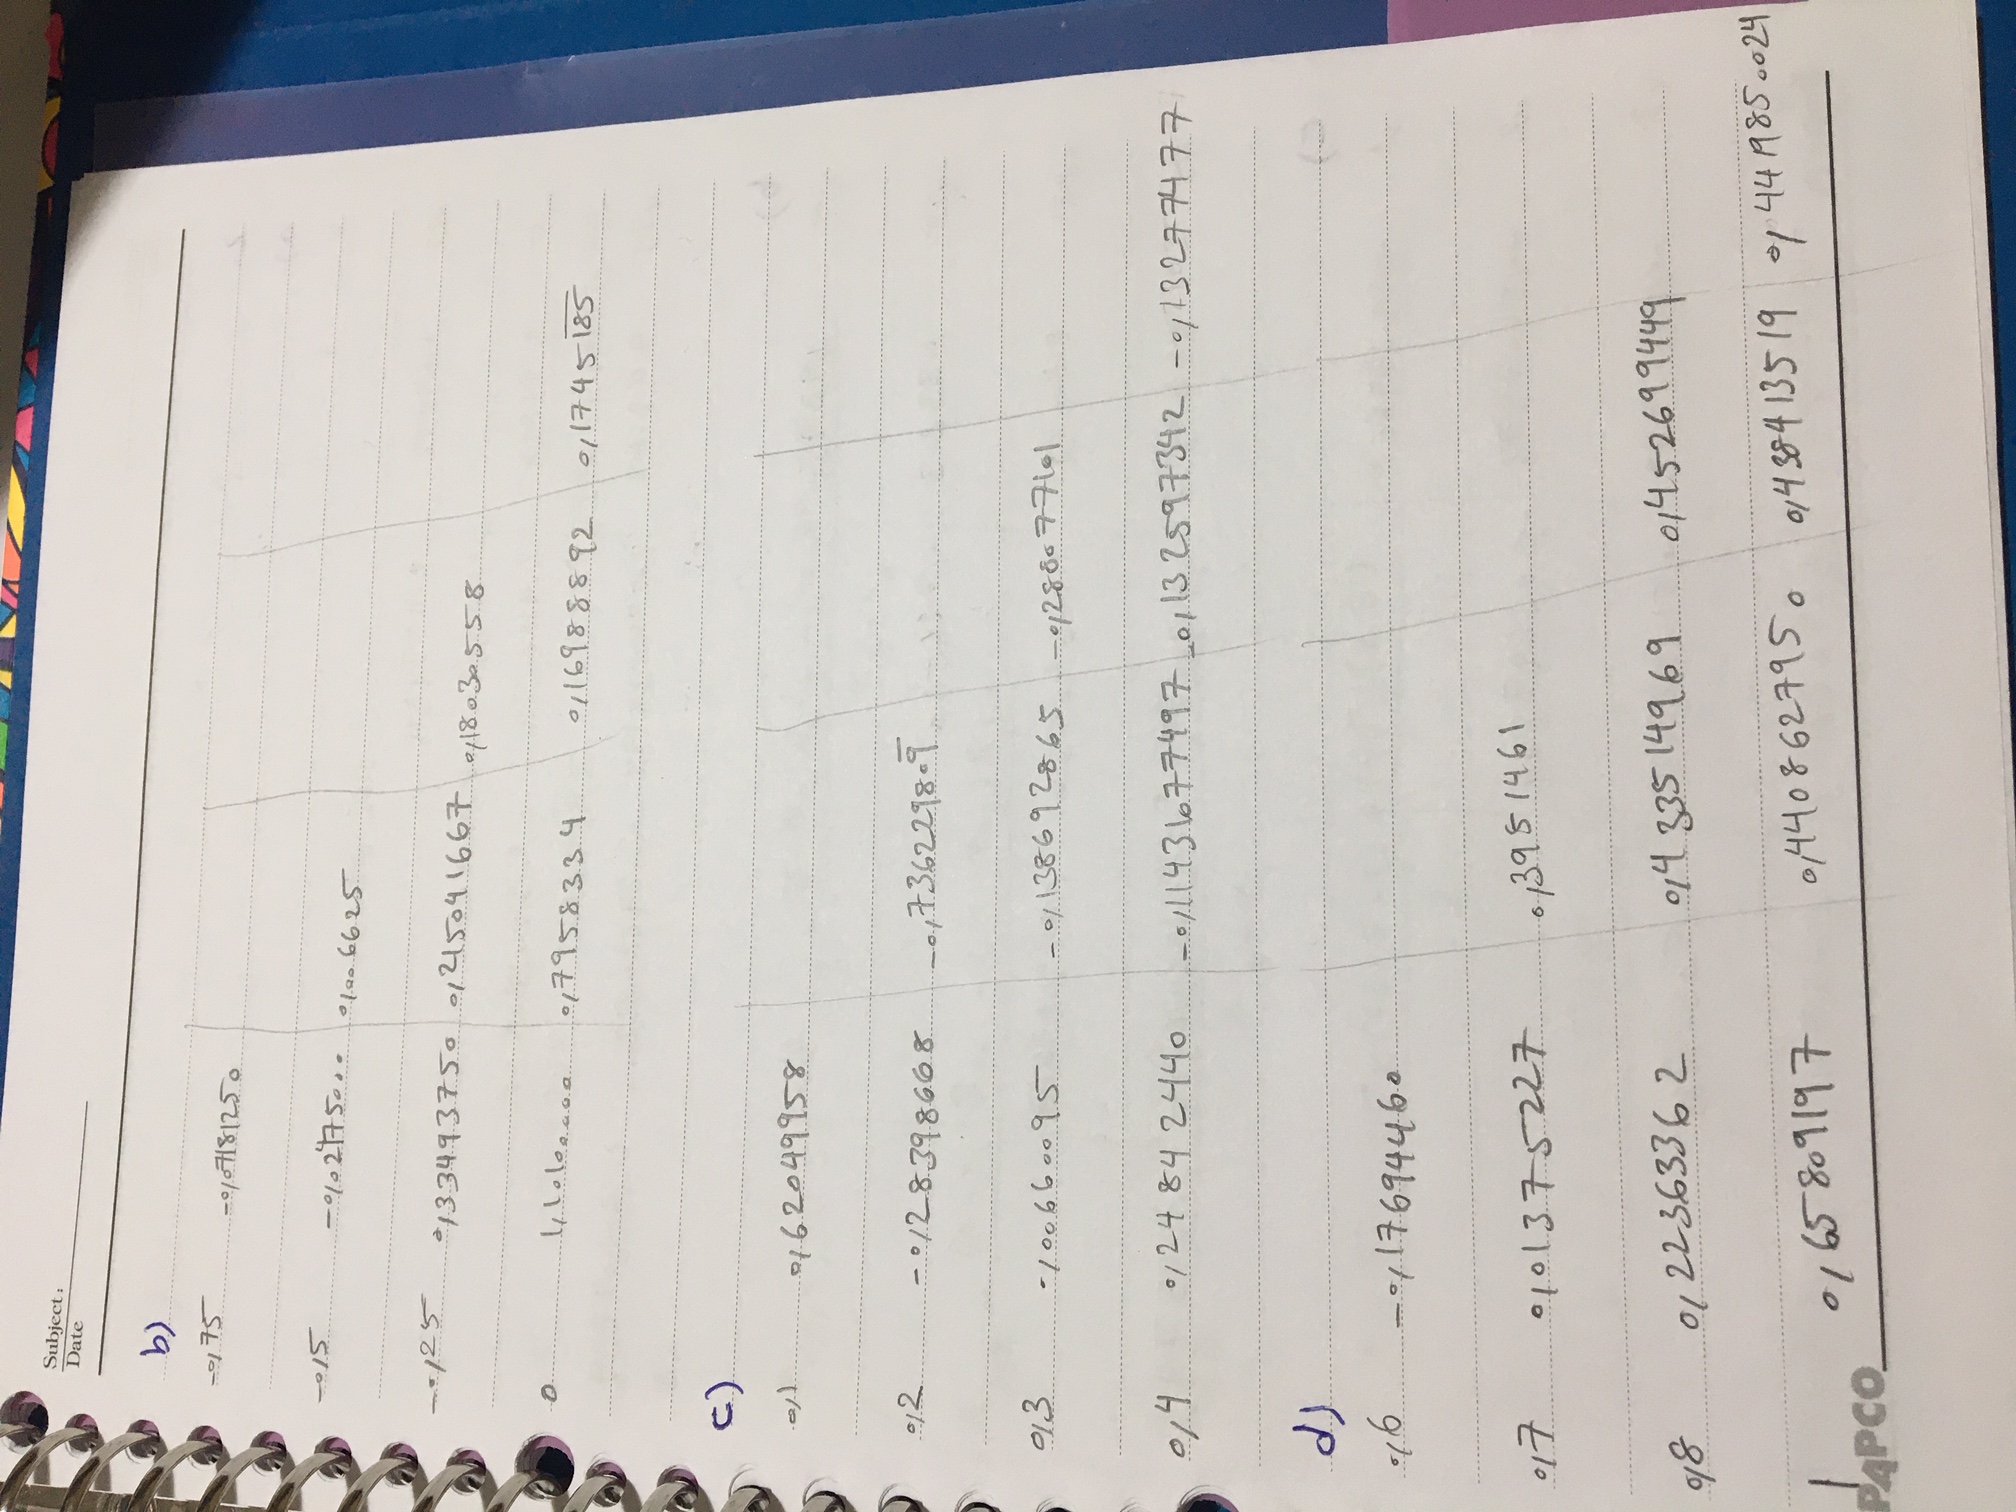 Subject:
Date
b)
-0,75 -0,07181250
-0,5 -0,02475000 0,006625
-0,25 0,33493750 0,215041667 0,18030558
0 1,10100000 0,7958334 0,16988892 0,1745185
c)
0,1 0,62049958
0,2 -0,28398668 -0,736229809
0,3 0,00660095 -0,138692865 -0,288077101
0,4 0,248422440 -0,11431677497 -0,132597342 -0,13277477
d)
0,6 -0,17694460
0,7 0,01375227 0,3951461
0,8 0,22363362 0,433514969 0,452699449
1 0,65809197 0,4408627950 0,438413519 0,4419850024
PAPCO